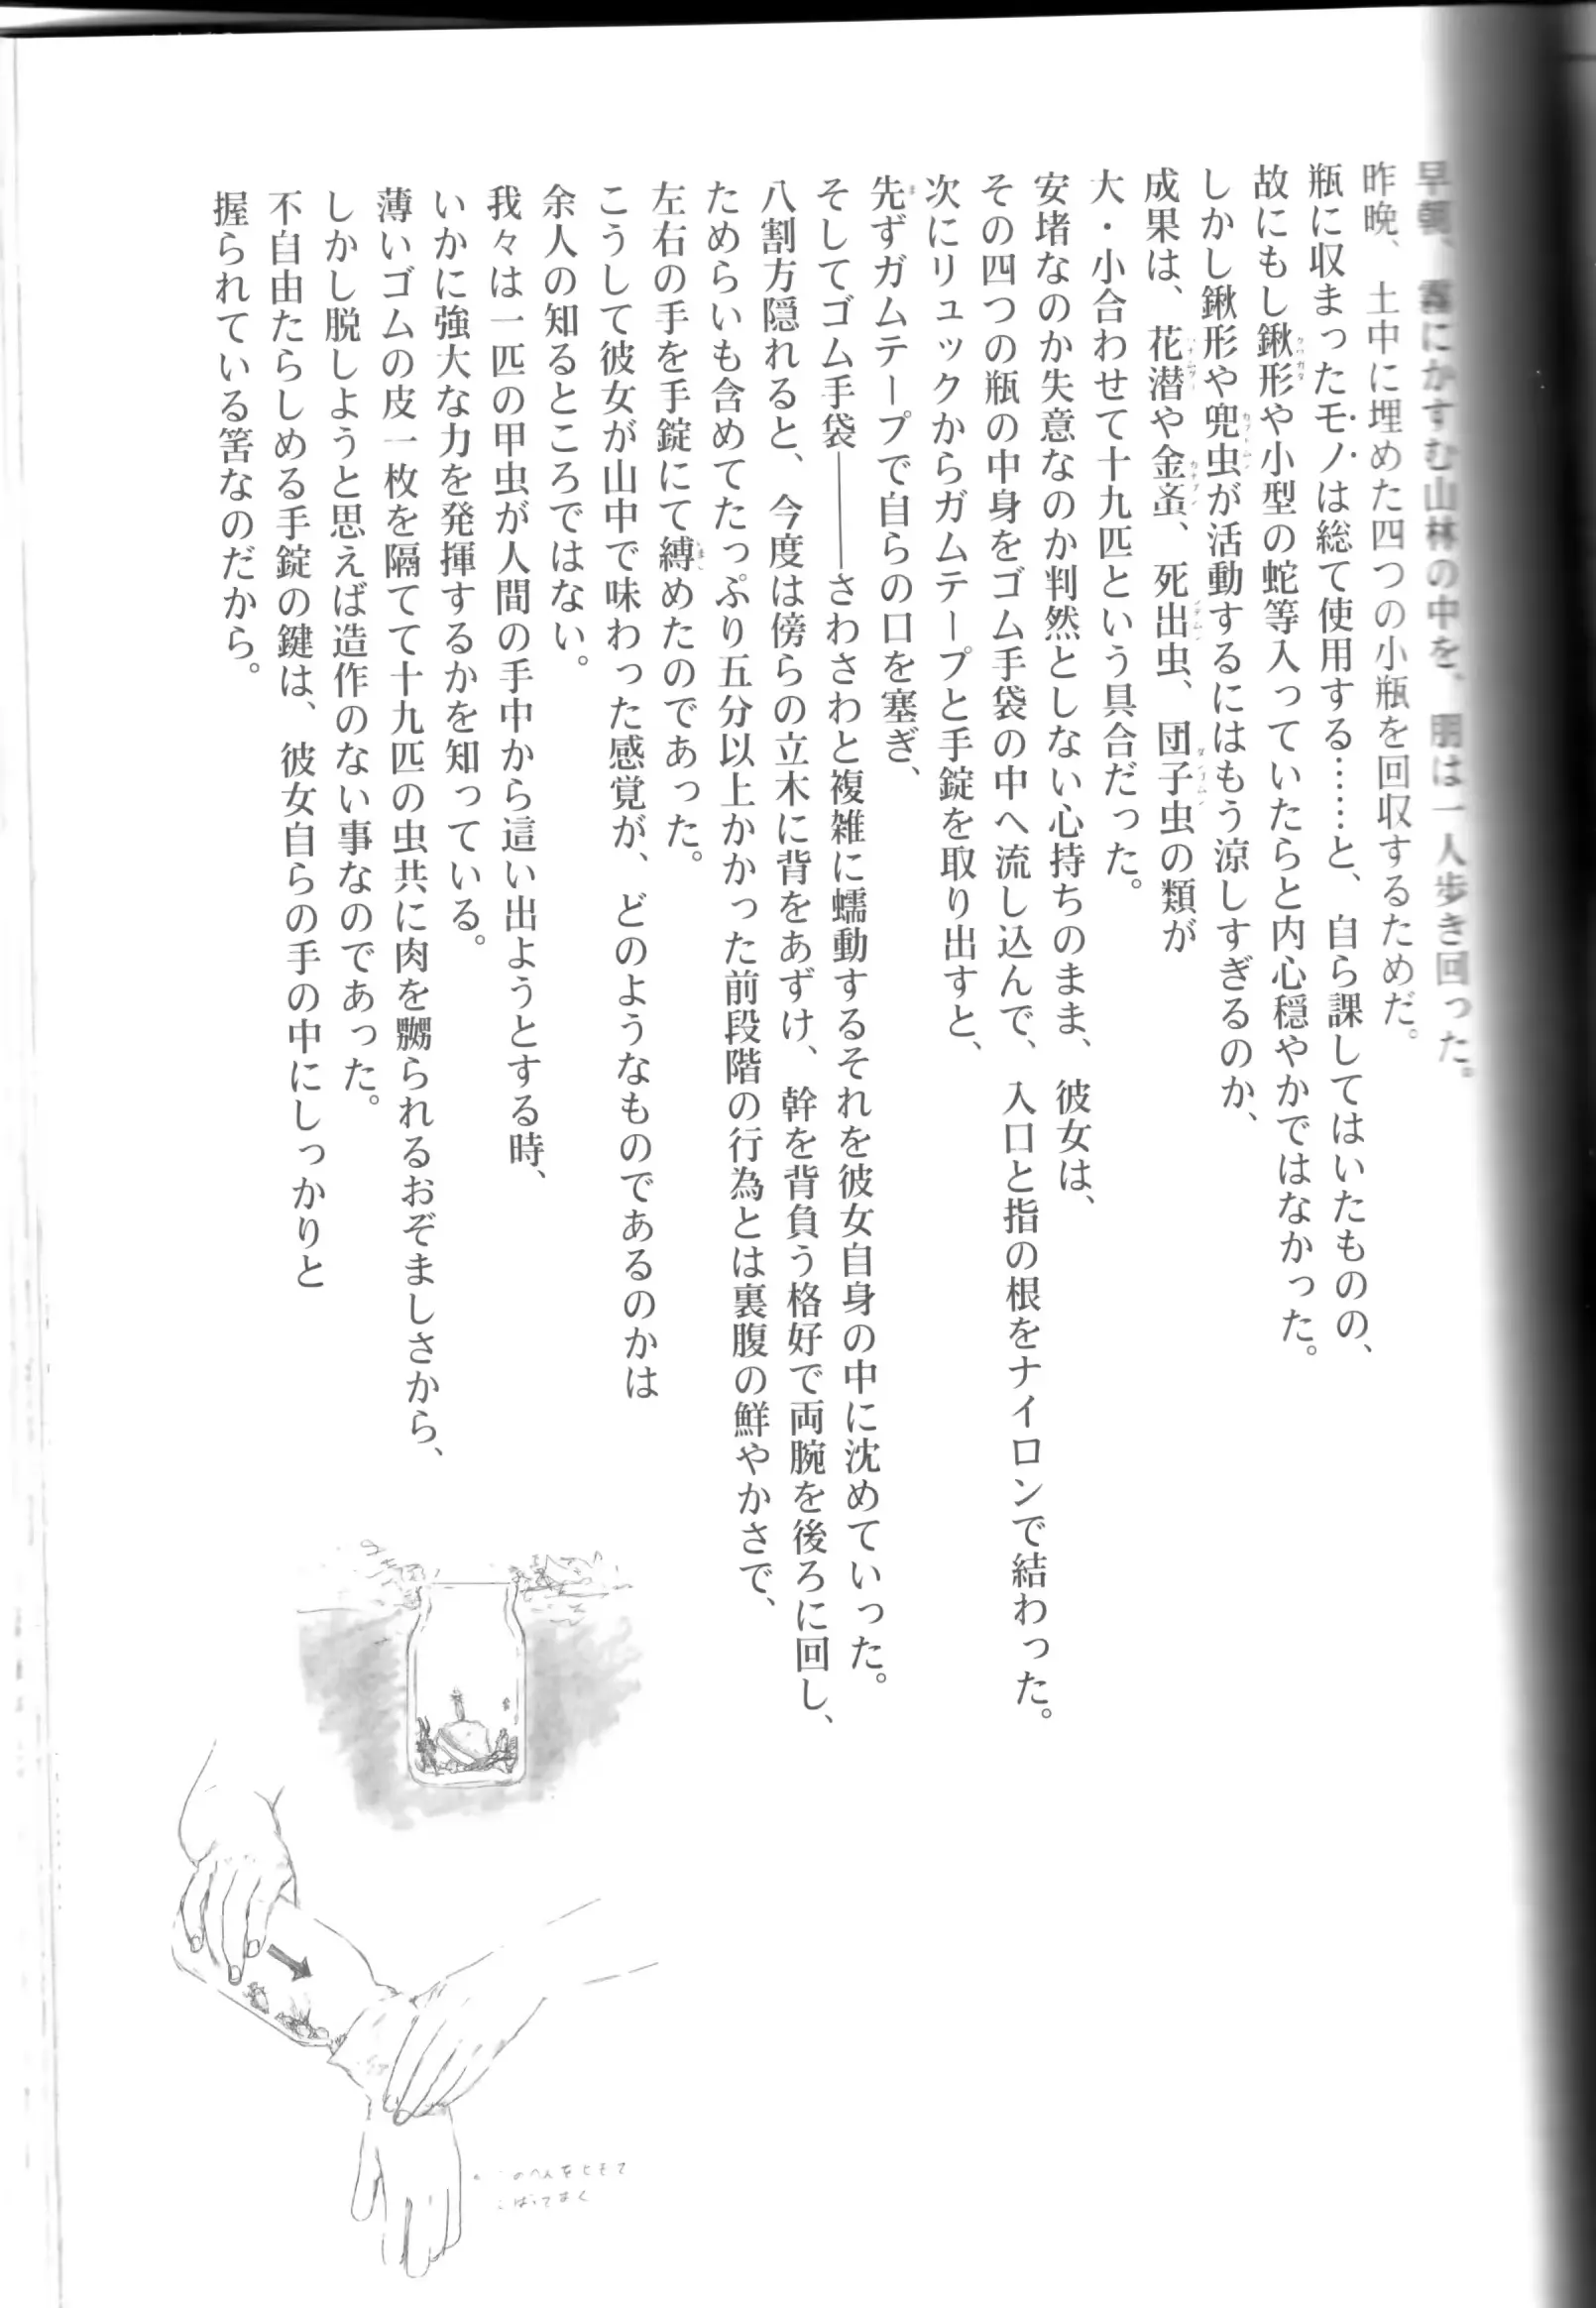 早朝、霧にかすむ山林の中を、朋は一人歩き回った。
昨晩、土中に埋めた四つの小瓶を回収するためだ。
瓶に収まったモノは総て使用する……と、自ら課してはいたものの、
故にもし鍬形や小型の蛇等入っていたらと内心穏やかではなかった。
しかし鍬形や兜虫が活動するにはもう涼しすぎるのか、
成果は、花潜や金蚉、死出虫、団子虫の類が
大・小合わせて十九匹という具合だった。
安堵なのか失意なのか判然としない心持ちのまま、彼女は、
その四つの瓶の中身をゴム手袋の中へ流し込んで、入口と指の根をナイロンで結わった。
次にリュックからガムテープと手錠を取り出すと、
先ずガムテープで自らの口を塞ぎ、
そしてゴム手袋――さわさわと複雑に蠕動するそれを彼女自身の中に沈めていった。
八割方隠れると、今度は傍らの立木に背をあずけ、幹を背負う格好で両腕を後ろに回し、
ためらいも含めてたっぷり五分以上かかった前段階の行為とは裏腹の鮮やかさで、
左右の手を手錠にて縛めたのであった。
こうして彼女が山中で味わった感覚が、どのようなものであるのかは
余人の知るところではない。
我々は一匹の甲虫が人間の手中から這い出ようとする時、
いかに強大な力を発揮するかを知っている。
薄いゴムの皮一枚を隔てて十九匹の虫共に肉を嬲られるおぞましさから、
しかし脱しようと思えば造作のない事なのであった。
不自由たらしめる手錠の鍵は、彼女自らの手の中にしっかりと
握られている筈なのだから。
のへんをヒモで
ばっておく